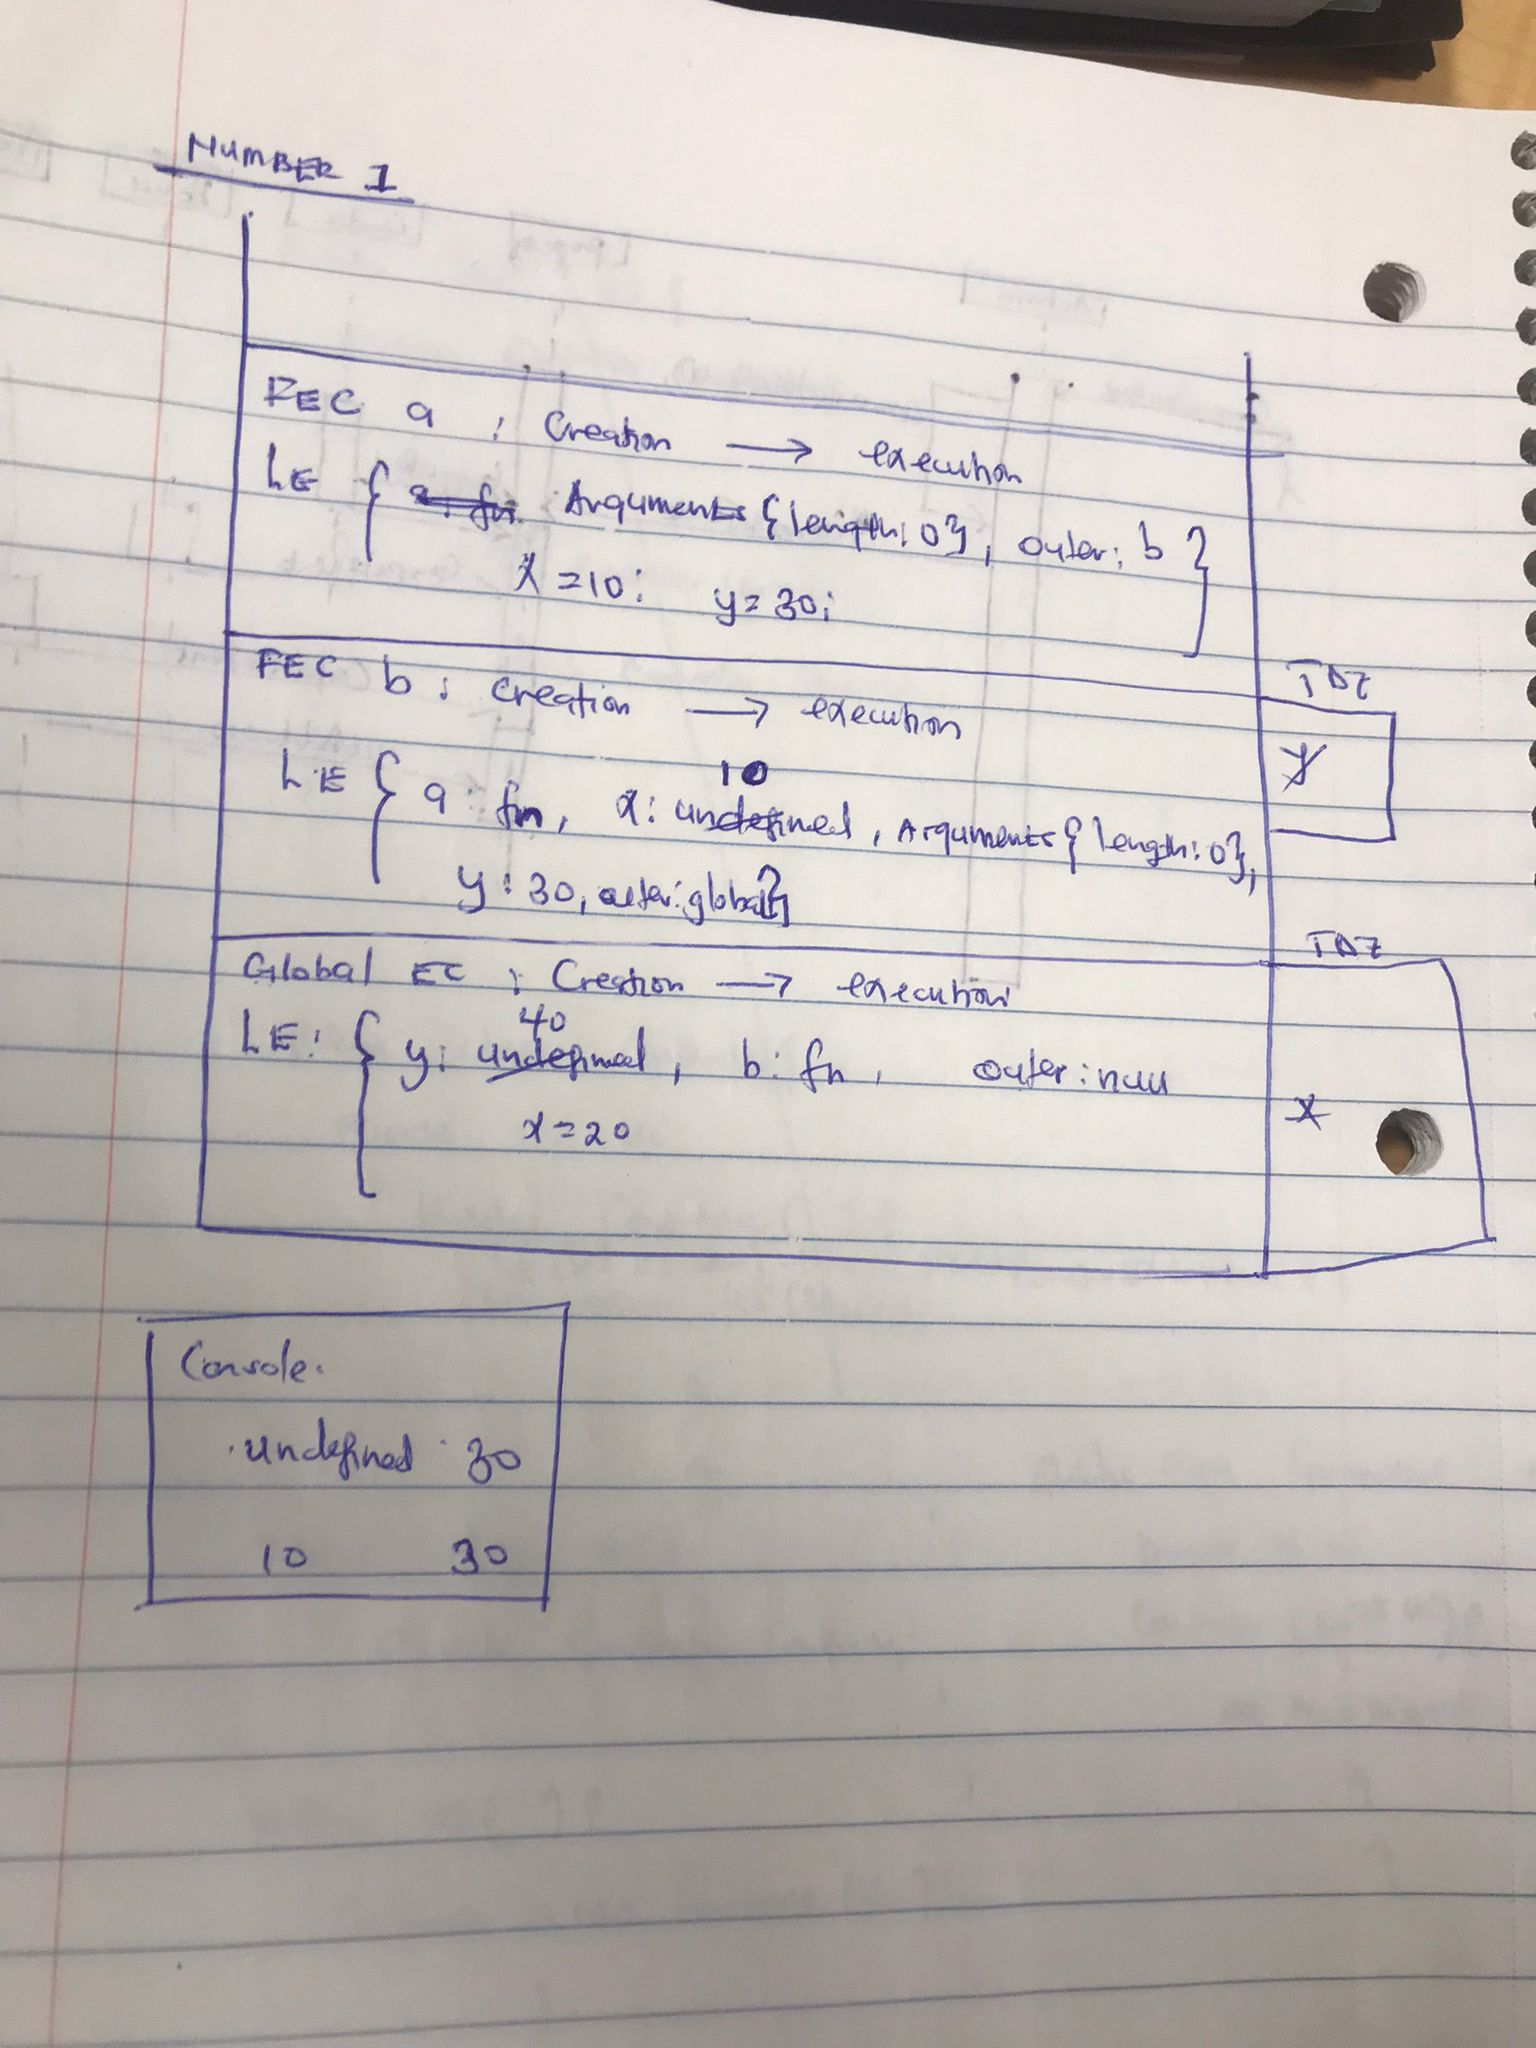 NUMBER 1
FEC a : Creation → execution
LE { a: fn Arguments {length: 0}, outer: b }
x = 10; y = 30;
FEC b : creation → execution
TDZ
y
10
LE { a : fn, x: undefined, Arguments { length: 0},
y : 30, outer: global}
TDZ
Global EC : Creation → execution
40
LE: { y: undefined, b: fn, outer: null
x
x = 20
Console.
undefined 30
10 30